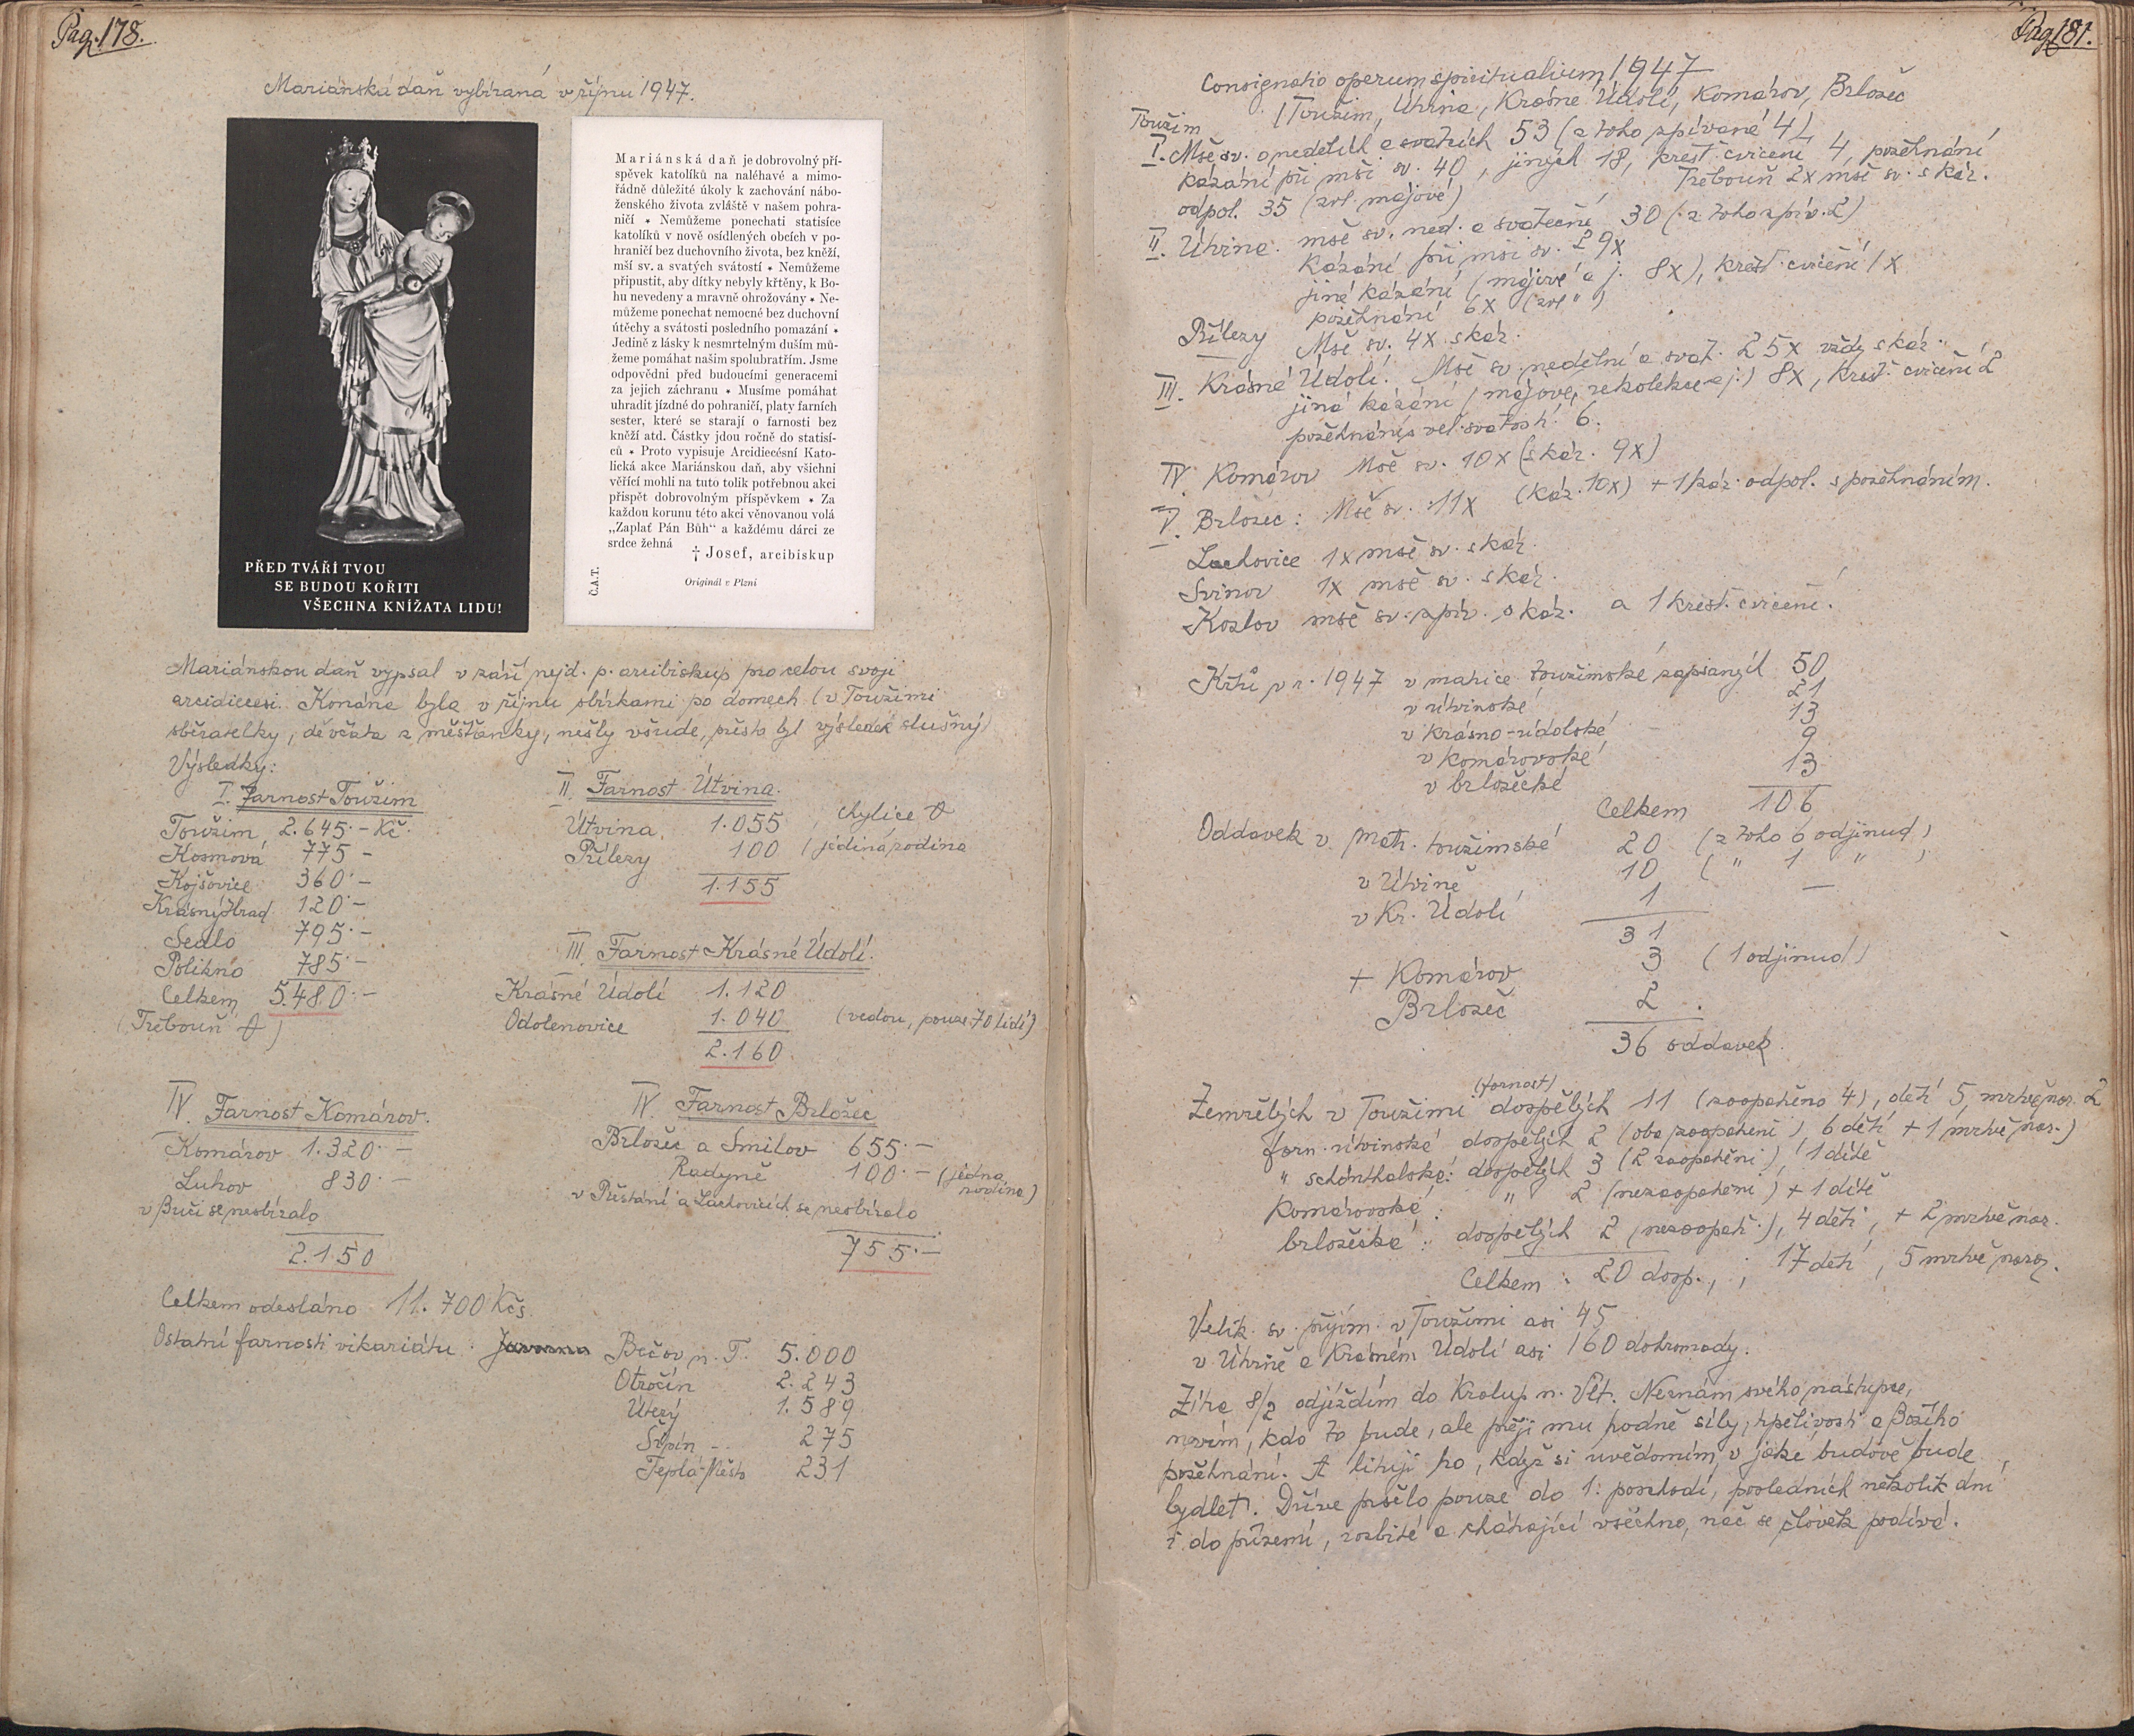 Pag. 178.
Mariánská daň vybíraná v říjnu 1947.
PŘED TVÁŘÍ TVOU
SE BUDOU KOŘITI
VŠECHNA KNÍŽATA LIDU!
Mariánská daň je dobrovolný pří-
spěvek katolíků na naléhavé a mimo-
řádně důležité úkoly k zachování nábo-
ženského života zvláště v našem pohra-
ničí * Nemůžeme ponechati statisíce
katolíků v nově osídlených obcích v po-
hraničí bez duchovního života, bez kněží,
mší sv. a svatých svátostí * Nemůžeme
připustit, aby dítky nebyly křtěny, k Bo-
hu nevedeny a mravně ohrožovány * Ne-
můžeme ponechat nemocné bez duchovní
útěchy a svátosti posledního pomazání *
Jedině z lásky k nesmrtelným duším mů-
žeme pomáhat našim spolubratřím. Jsme
odpovědni před budoucími generacemi
za jejich záchranu * Musíme pomáhat
uhradit jízdné do pohraničí, platy farních
sester, které se starají o farnosti bez
kněží atd. Částky jdou ročně do statisí-
ců * Proto vypisuje Arcidiecésní Kato-
lická akce Mariánskou daň, aby všichni
věřící mohli na tuto tolik potřebnou akci
přispět dobrovolným příspěvkem * Za
každou korunu této akci věnovanou volá
„Zaplať Pán Bůh“ a každému dárci ze
srdce žehná
† Josef, arcibiskup
Č.A.T.
Originál v Plzni
Mariánskou daň vypsal v září nejd. p. arcibiskup pro celou svoji
arcidiecesi. Konána byla v říjnu sbírkami po domech (v Toužimi
sběratelky, děvčata z měšťanky, nešly všude, přesto byl výsledek slušný)
Výsledky:
I. Farnost Toužim
Toužim 2.645·- Kč.
Kosmová 775 -
Kojšovice 360·-
Krásný Hrad 120·-
Sedlo 795·-
Polikno 785·-
Celkem 5.480·-
(Třebouň 0)
II. Farnost Útvina.
Útvina 1.055, Chylice 0
Přílezy 100 (jediná rodina
1.155
III. Farnost Krásné Údolí.
Krásné Údolí 1.120
Odolenovice 1.040 (vedou, pouze 70 lidí)
2.160
IV. Farnost Komárov.
Komárov 1.320·-
Luhov 830·-
v Buči se nesbíralo
2.150
IV. Farnost Brložec
Brložec a Smilov 655·-
Radyně 100·- (jedna rodina)
v Přestání a Lachovicích se nesbíralo
755·-
Celkem odesláno 11.700 Kčs.
Ostatní farnosti vikariátu: Bečov n. T. 5.000
Otročín 2.243
Útery 1.589
Šipín -. 275
Teplá-Město 231
Pag. 181.
Consignatio operum spiritualium 1947
(Toužim, Útvina, Krásné Údolí, Komárov, Brložec
Toužim
I. Mše sv. o nedělích a svátcích 53 (z toho zpívané 4)
kázání při mši sv. 40, jiných 18, křesť. cvičení 4, požehnání
odpol. 35 (zvl. májové) Třebouň 2x mše sv. s káz.
II. Útvina: mše sv. ned. a sváteční 30 (z toho zpív. 2)
Kázání při mši sv. 29x
jiná kázání (májové a j. 8x), křesť. cvičení 1x
požehnání 6x (zvl " )
Přílezy Mše sv. 4x s káz.
III. Krásné Údolí: Mše sv. nedělní a svát. 25x vždy s káz.
jiná kázání (májové, rekolekce a j.) 8x, křesť. cvičení 2
požehnání s vel. svátostí 6.
IV. Komárov Mše sv. 10x (s káz. 9x)
V. Brložec: Mše sv. 11x (káz. 10x) + 1 káz. odpol. s požehnáním.
Lachovice 1x mše sv. s káz.
Svinov 1x mše sv. s káz.
Kozlov mše sv. zpív. s káz. a 1 křesť. cvičení.
Křtů v r. 1947 v matrice toužimské zapsaných 50
v útvinské 21
v krásno-údolské 13
v komárovské 9
v brložecké 13
Celkem 106
Oddavek v matr. toužimské 20 (z toho 6 odjinud)
v Útvině 10 ( " 1 " )
v Kr. Údolí 1 —
31
+ Komárov 3 (1 odjinud)
Brložec 2.
36 oddavek.
Zemřelých v Toužimi (farnost) dospělých 11 (zaopatřeno 4), dětí 5, mrtvě nar. 2
farn. útvinské dospělých 2 (oba zaopatřeni), 6 dětí + 1 mrtvě nar.)
" schönthalské: dospělých 3 (2 zaopatřeni), 1 dítě
Komárovské: " 2 (nezaopatřeni) + 1 dítě
brložecké: dospělých 2 (nezaopatř.), 4 děti, + 2 mrtvě nar.
Celkem: 20 dosp., ; 17 dětí, 5 mrtvě naroz.
Velik. sv. přijím. v Toužimi asi 45
v Útvině a Krásném Údolí asi 160 dohromady.
Zítra 8/2 odjíždím do Kralup n. Vlt. Neznám svého nástupce,
nevím, kdo to bude, ale přeji mu hodně síly, trpělivosti a Božího
požehnání. A lituji ho, když si uvědomím, v jaké budově bude
bydlet. Dříve pršelo pouze do 1. poschodí, posledních několik dní
i do přízemí, rozbité a chátrající všechno, nač se člověk podívá.